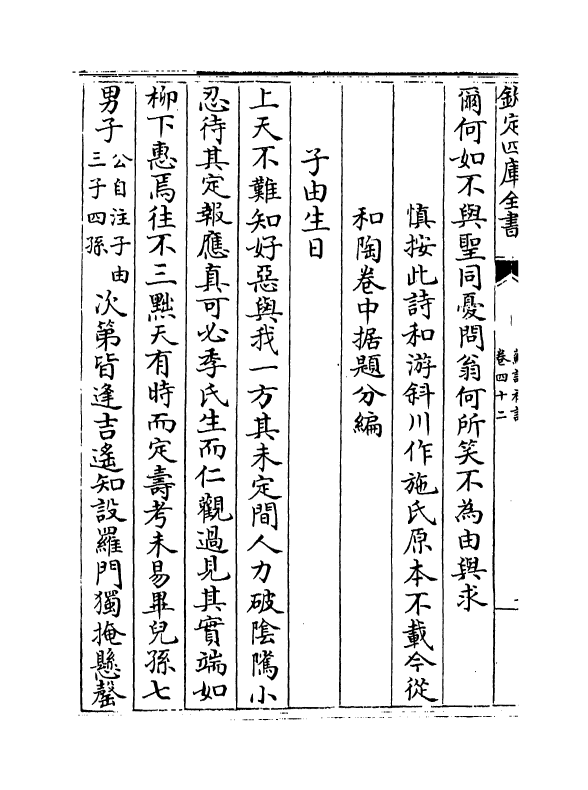 欽定四庫全書
卷四十二
爾何如不與聖同憂問翁何所笑不為由與求
慎按此詩和游斜川作施氏原本不載今從
和陶卷中据題分編
子由生日
上天不難知好惡與我一方其未定間人力破陰隲小
忍待其定報應真可必季氏生而仁觀過見其實端如
柳下惠焉往不三黜天有時而定壽考未易畢兒孫七
男子公自注子由三子四孫次第皆逢吉遙知設羅門獨掩懸罄